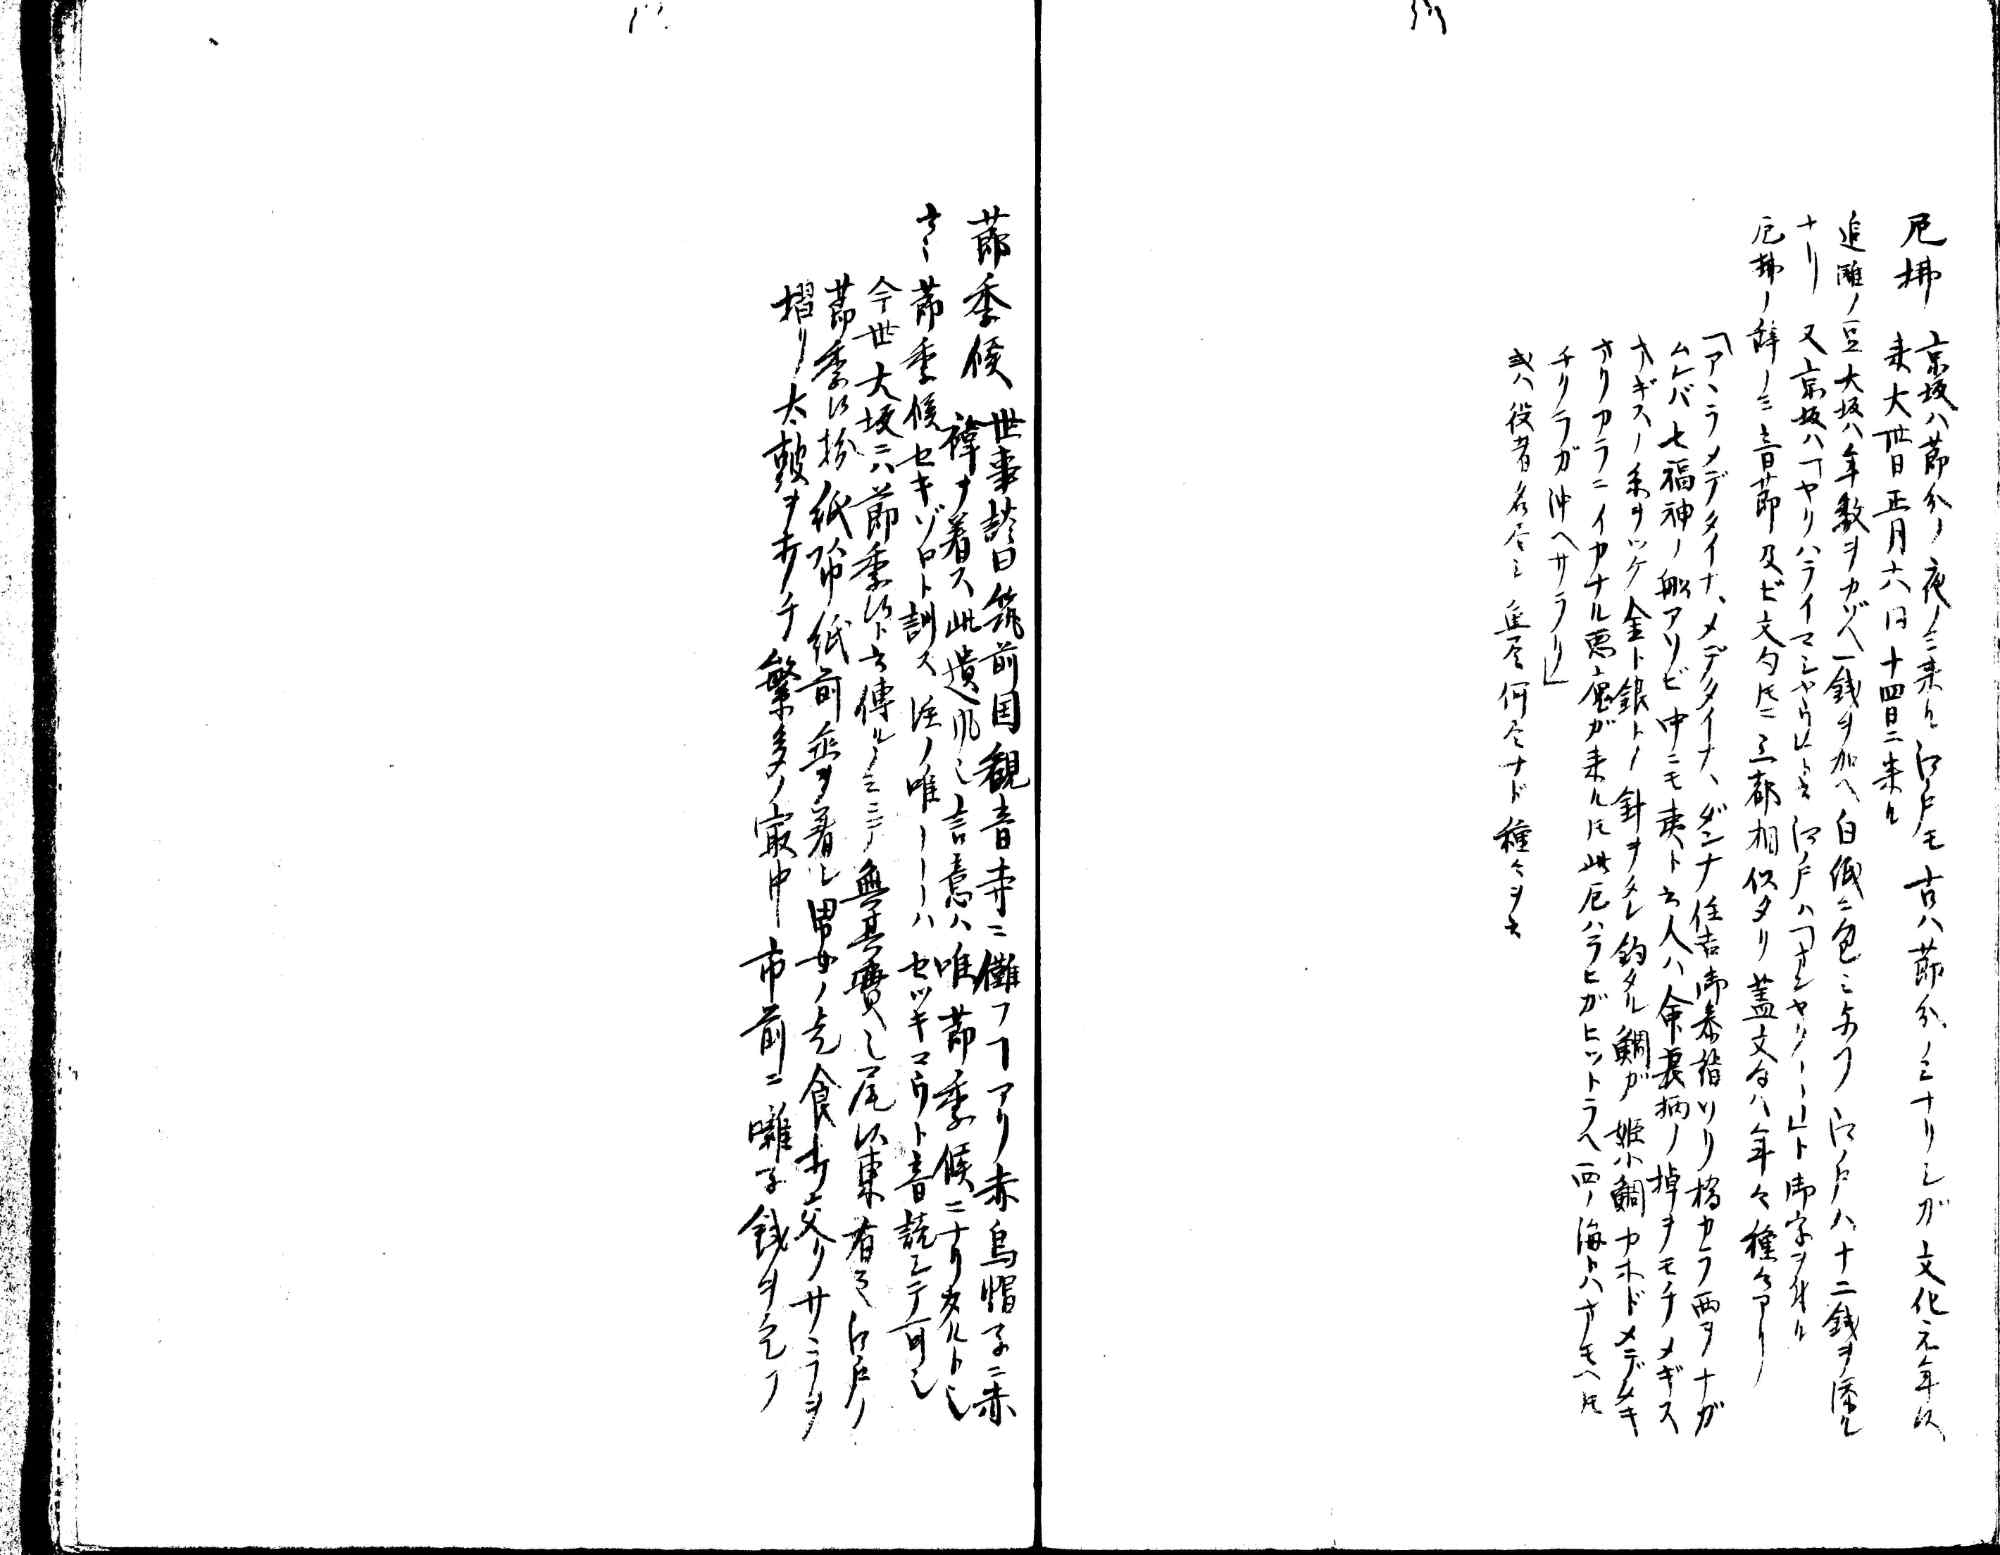 厄拂 京坂ハ節分ノ夜ノミ来ル江戸モ古ハ節分ノミナリシガ文化元年以
来大卅日正月六日十四日ニ来ル
追儺ノ豆大坂ハ年数ヲカゾヘ一銭ヲ加ヘ白紙ニ包ミ与フ江戸ハ十二銭ヲ添ル
ナリ 又京坂ハ「ヤクハライマシヤウ」ト云江戸ハ「オンヤク〳〵」ト御字ヲ付ル
厄拂ノ辞ノミ音節及ビ文句トモニ三都相似タリ蓋文句ハ年々種々アリ
「アヽラメデタイナ、メデタイナ、ダンナ住吉御参詣ソリ橋カラ西ヲナガ
ムレバ七福神ノ船アソビ中ニモ夷ト云人ハ命長柄ノ棹ヲモチメギス
オギスノ糸ヲツケ金ト銀トノ針ヲタレ釣タル鯛ガ姫小鯛カホドメデタキ
オリカラニイカナル悪魔ガ来ルトモ此厄ハラヒガヒツトラヘ西ノ海トハオモヘトモ
チクラガ沖ヘサラリ」
或ハ役者名尽シ魚尽何尽ナド種々ヲ云
節季候 世事談曰筑前国観音寺ニ儺フヿアリ赤烏帽子ニ赤
褌ヲ着ス此遺風也言意ハ唯節季候ニナリタルト也
云々節季候セキゾロト訓ス注ノ唯〳〵ハセツキマウト音読シテ可也
今世大坂ニハ節季候ト云傳ルノミニテ無其実也尾以東有之江戸ノ
節季候扮紙帋紙前垂ヲ着シ男女ノ乞食打交リサヽラヲ
摺リ太鼓ヲ打チ繁多ノ最中市前ニ囃子銭ヲ乞フ